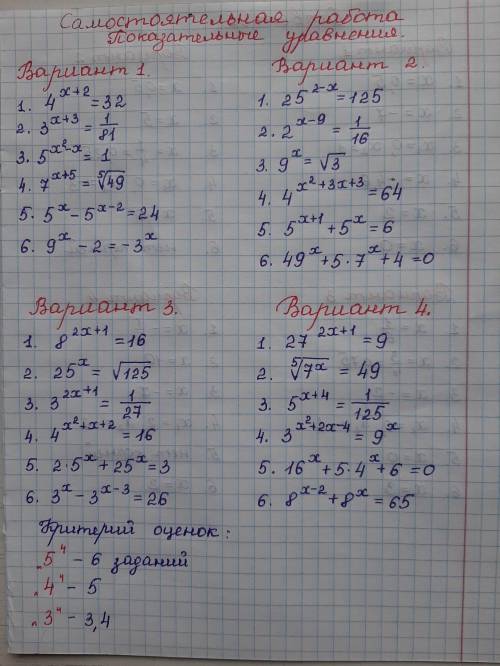 Самостоятельная работа
Показательные уравнения.
Вариант 1.
1. 4^(x+2) = 32
2. 3^(x+3) = 1/81
3. 5^(x²-x) = 1
4. 7^(x+5) = ⁵√49
5. 5^x - 5^(x-2) = 24
6. 9^x - 2 = -3^x
Вариант 2.
1. 25^(2-x) = 125
2. 2^(x-9) = 1/16
3. 9^x = √3
4. 4^(x²+3x+3) = 64
5. 5^(x+1) + 5^x = 6
6. 49^x + 5·7^x + 4 = 0
Вариант 3.
1. 8^(2x+1) = 16
2. 25^x = √125
3. 3^(2x+1) = 1/27
4. 4^(x²+x+2) = 16
5. 2·5^x + 25^x = 3
6. 3^x - 3^(x-3) = 26
Вариант 4.
1. 27^(2x+1) = 9
2. ⁵√7^x = 49
3. 5^(x+4) = 1/125
4. 3^(x²+2x-4) = 9^x
5. 16^x + 5·4^x + 6 = 0
6. 8^(x-2) + 8^x = 65
Критерий оценок:
„5" - 6 заданий
„4" - 5
„3" - 3,4